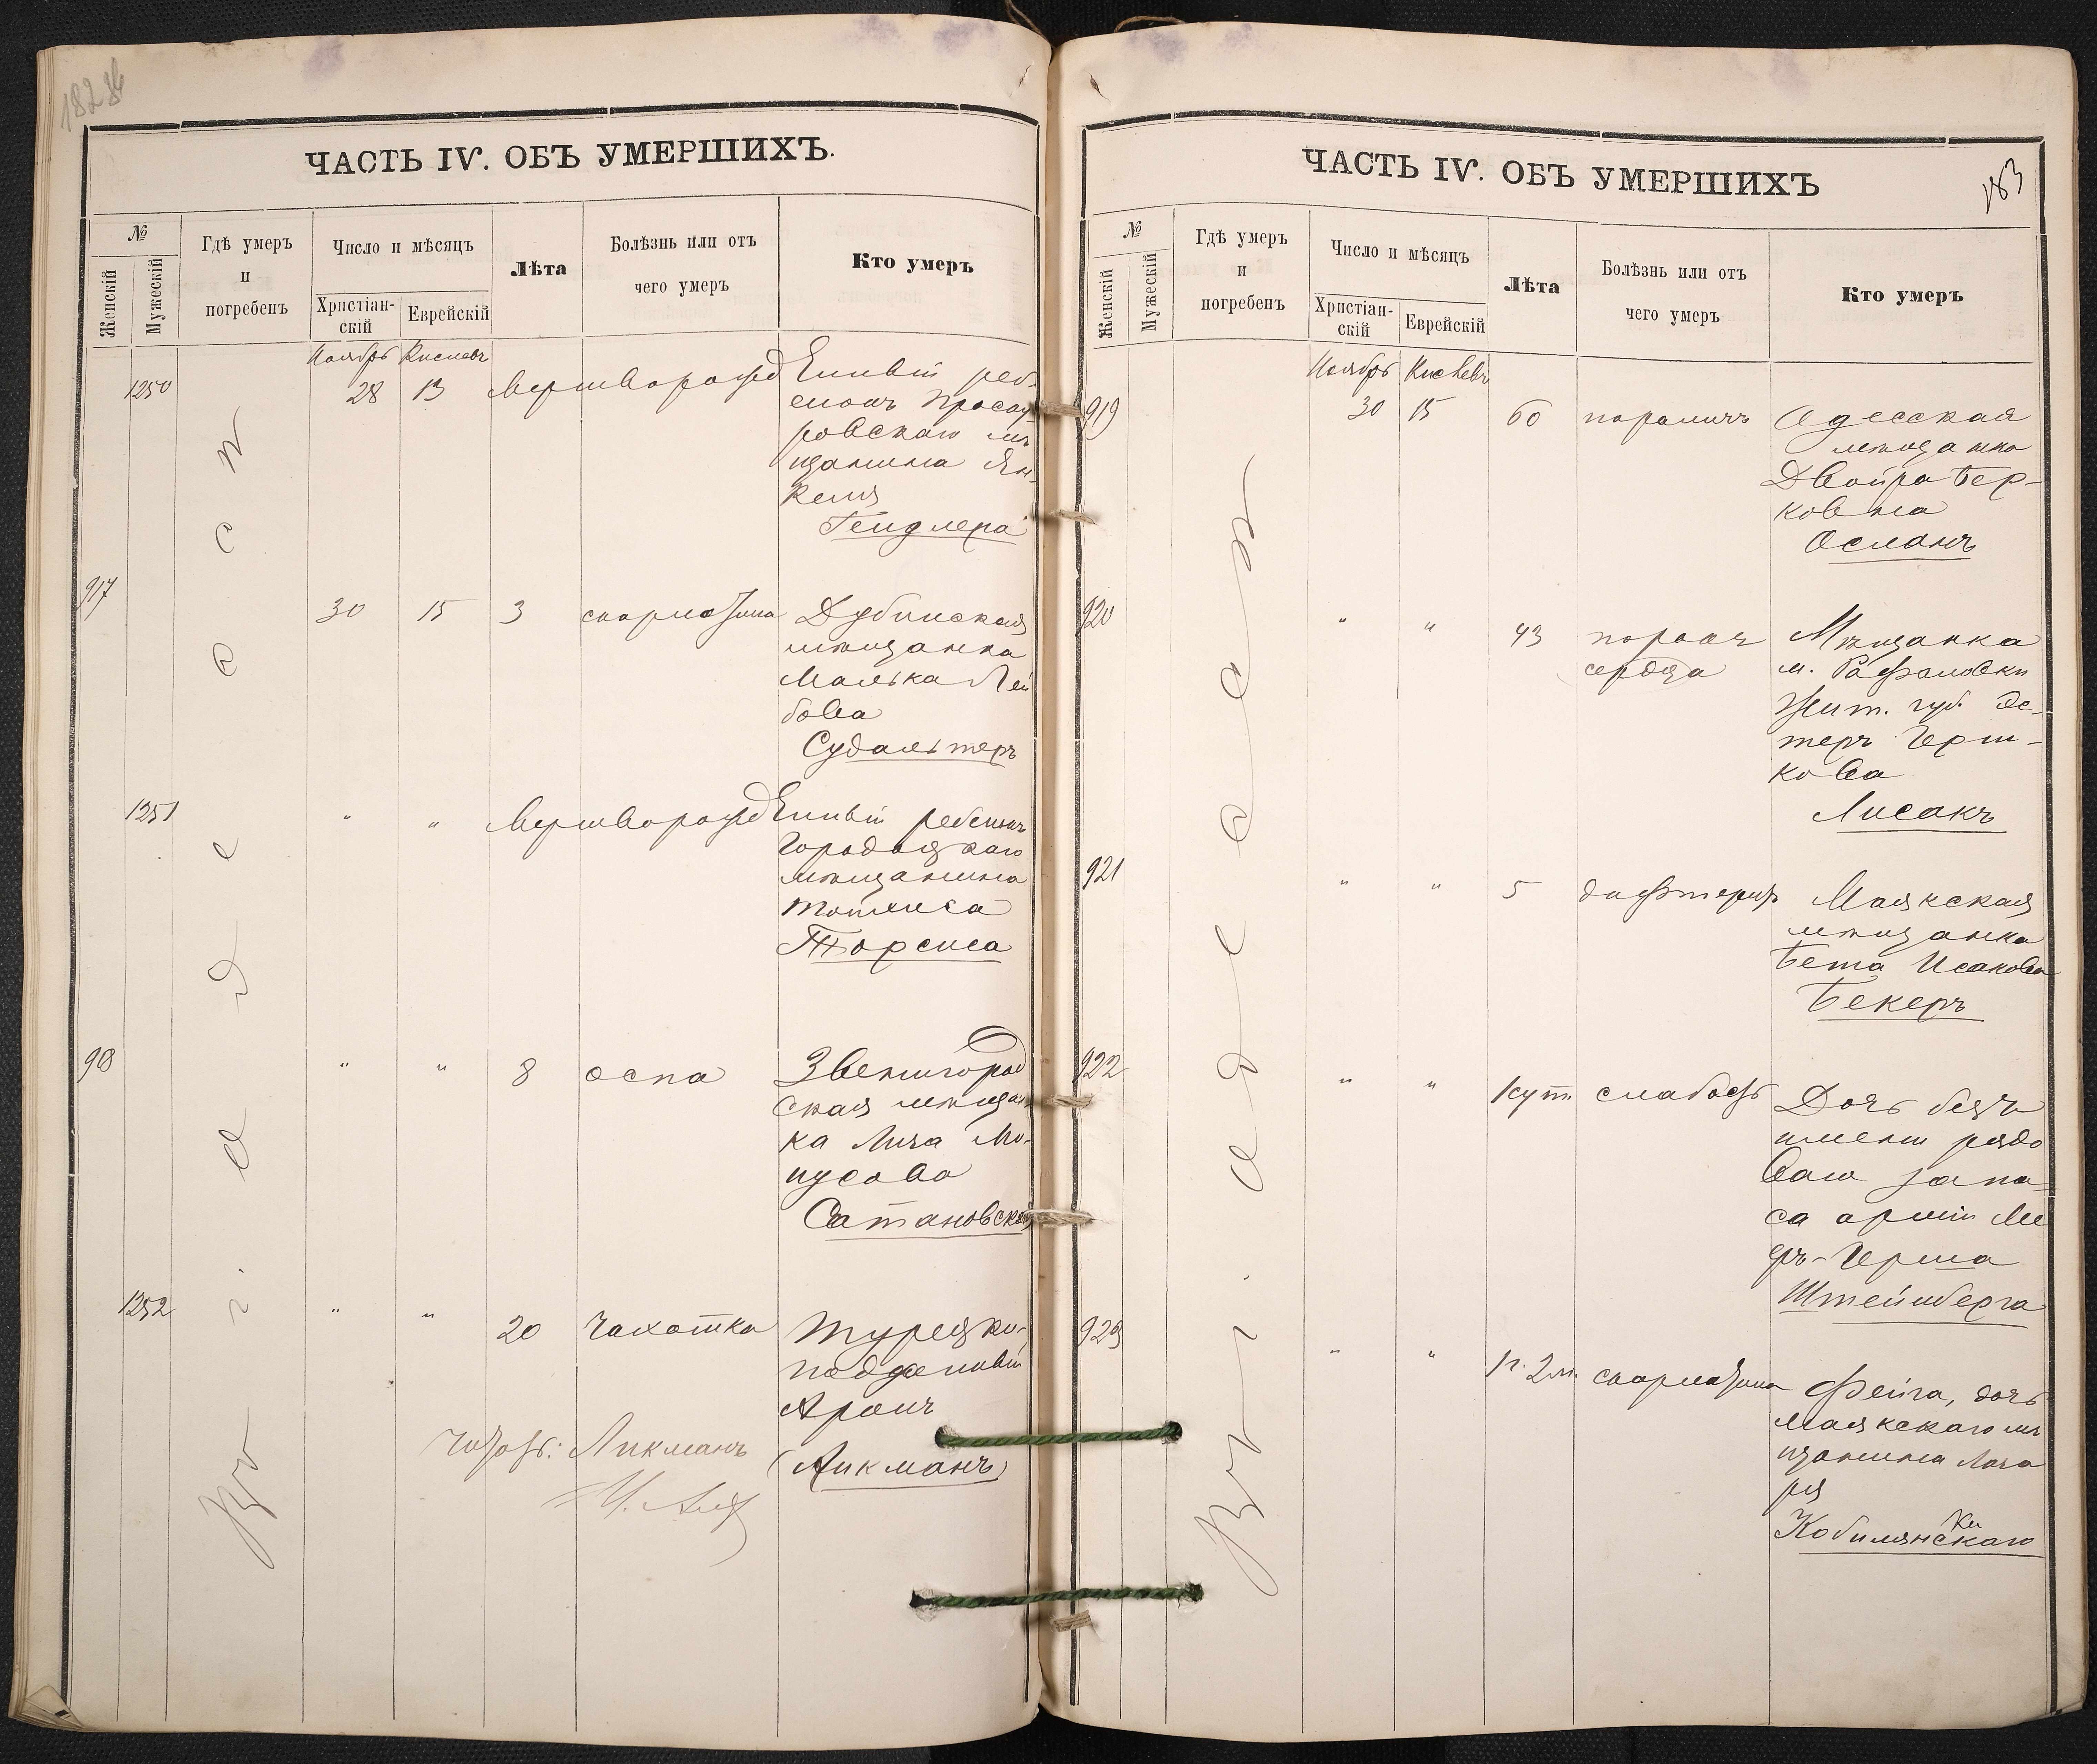 182 об
ЧАСТЬ IV. ОБЪ УМЕРШИХЪ.
№
Женскій
Мужескій
Гдѣ умеръ
и
погребенъ
Число и мѣсяцъ
Христіан-
скій
Еврейскій
Лѣта
Болѣзнь или отъ
чего умеръ
Кто умеръ
Въ г. Одессѣ
Ноябрь Кислевъ
1250 28 13 Мертворожд енный реб-
енокъ Проску
ровскаго мѣ
щанина Ян-
келя
Гендлера
917 30 15 3 скарлатина Дубинская
мѣщанка
Малька Лей
бова
Судальтеръ
1251 " " Мертворожд енный ребенокъ
Городоцкаго
мѣщанина
Торсиса
918 " " 8 оспа Звенигород
ская мѣщан
ка Лиза Мо-
Сатановская
1252 " " 20 Чахотка Турецко-
подданный
Аронъ
(Ликманъ)
Ликманъ
ЧАСТЬ IV. ОБЪ УМЕРШИХЪ
183
№
Женскій
Мужескій
Гдѣ умеръ
и
погребенъ
Число и мѣсяцъ
Христіан-
скій
Еврейскій
Лѣта
Болѣзнь или отъ
чего умеръ
Кто умеръ
Въ г. Одессѣ
Ноябрь Кислевъ
919 30 15 60 параличъ Одесская
мѣщанка
Двойра Бер-
ковна
Османъ
920 " " 43 порокъ Мѣщанка
сердца м. Рафаловки
Жит. губ. Эс-
теръ Герш-
кова
Лисакъ
921 " " 5 дифтеритъ Маякская
мѣщанка
Бета Исакова
Бекеръ
922 " " 1 сут. слабость Дочь безъ
имени рядо
ваго запа-
са арміи Ме
еръ-Герша
Штейнберга
923 " " 1 г. 2 м. скарлатина Фейга, дочь
Маякскаго мѣ
щанина Лаза
ря
Кобилянскаго